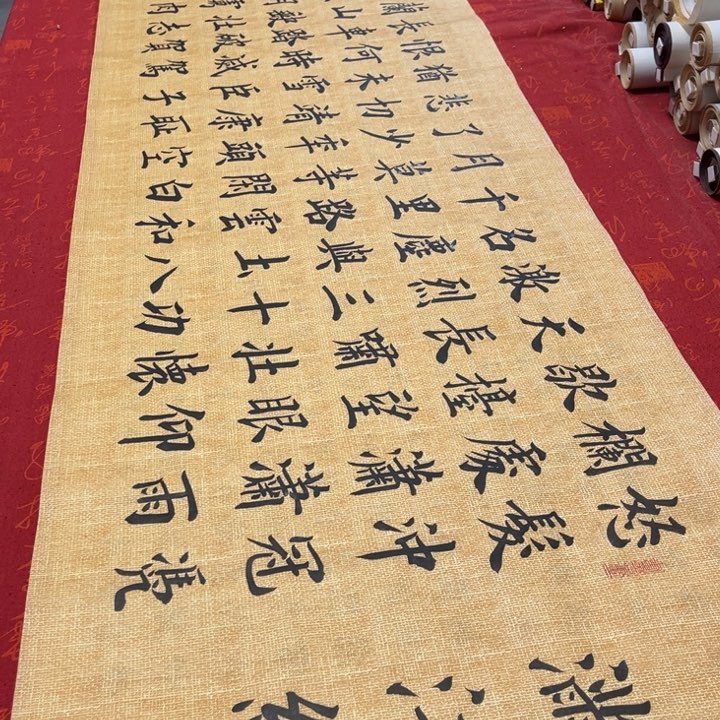 滿江紅
怒髮冲冠憑
欄處瀟瀟雨
歇擡望眼仰
天長嘯壯懷
激烈三十功
名塵與土八
千里路雲和
月莫等閑白
了少年頭空
悲切靖康恥
猶未雪臣子
恨何時滅駕
長車踏破賀
蘭山缺壯志